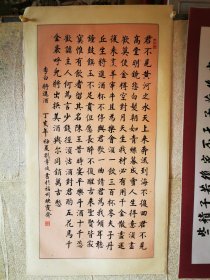 君不見黄河之水天上来奔流到海不復回君不見
高堂明鏡悲白髮朝如青絲暮成雪人生得意須盡
歡莫使金樽空對月天生我材必有用千金散盡還
復来烹羊宰牛且為樂會須一飲三百杯岑夫子丹
丘生將進酒杯莫停與君歌一曲請君為我傾耳聽
鐘鼓饌玉不足貴但願長醉不復醒古来聖賢皆寂
寞惟有飲者留其名陳王昔時宴平樂斗酒十千恣
歡謔主人何為言少錢徑須沽酒對君酌五花馬千
金裘呼兒將出換美酒與爾同銷萬古愁
李白將進酒 丁亥年初夏 書於福州